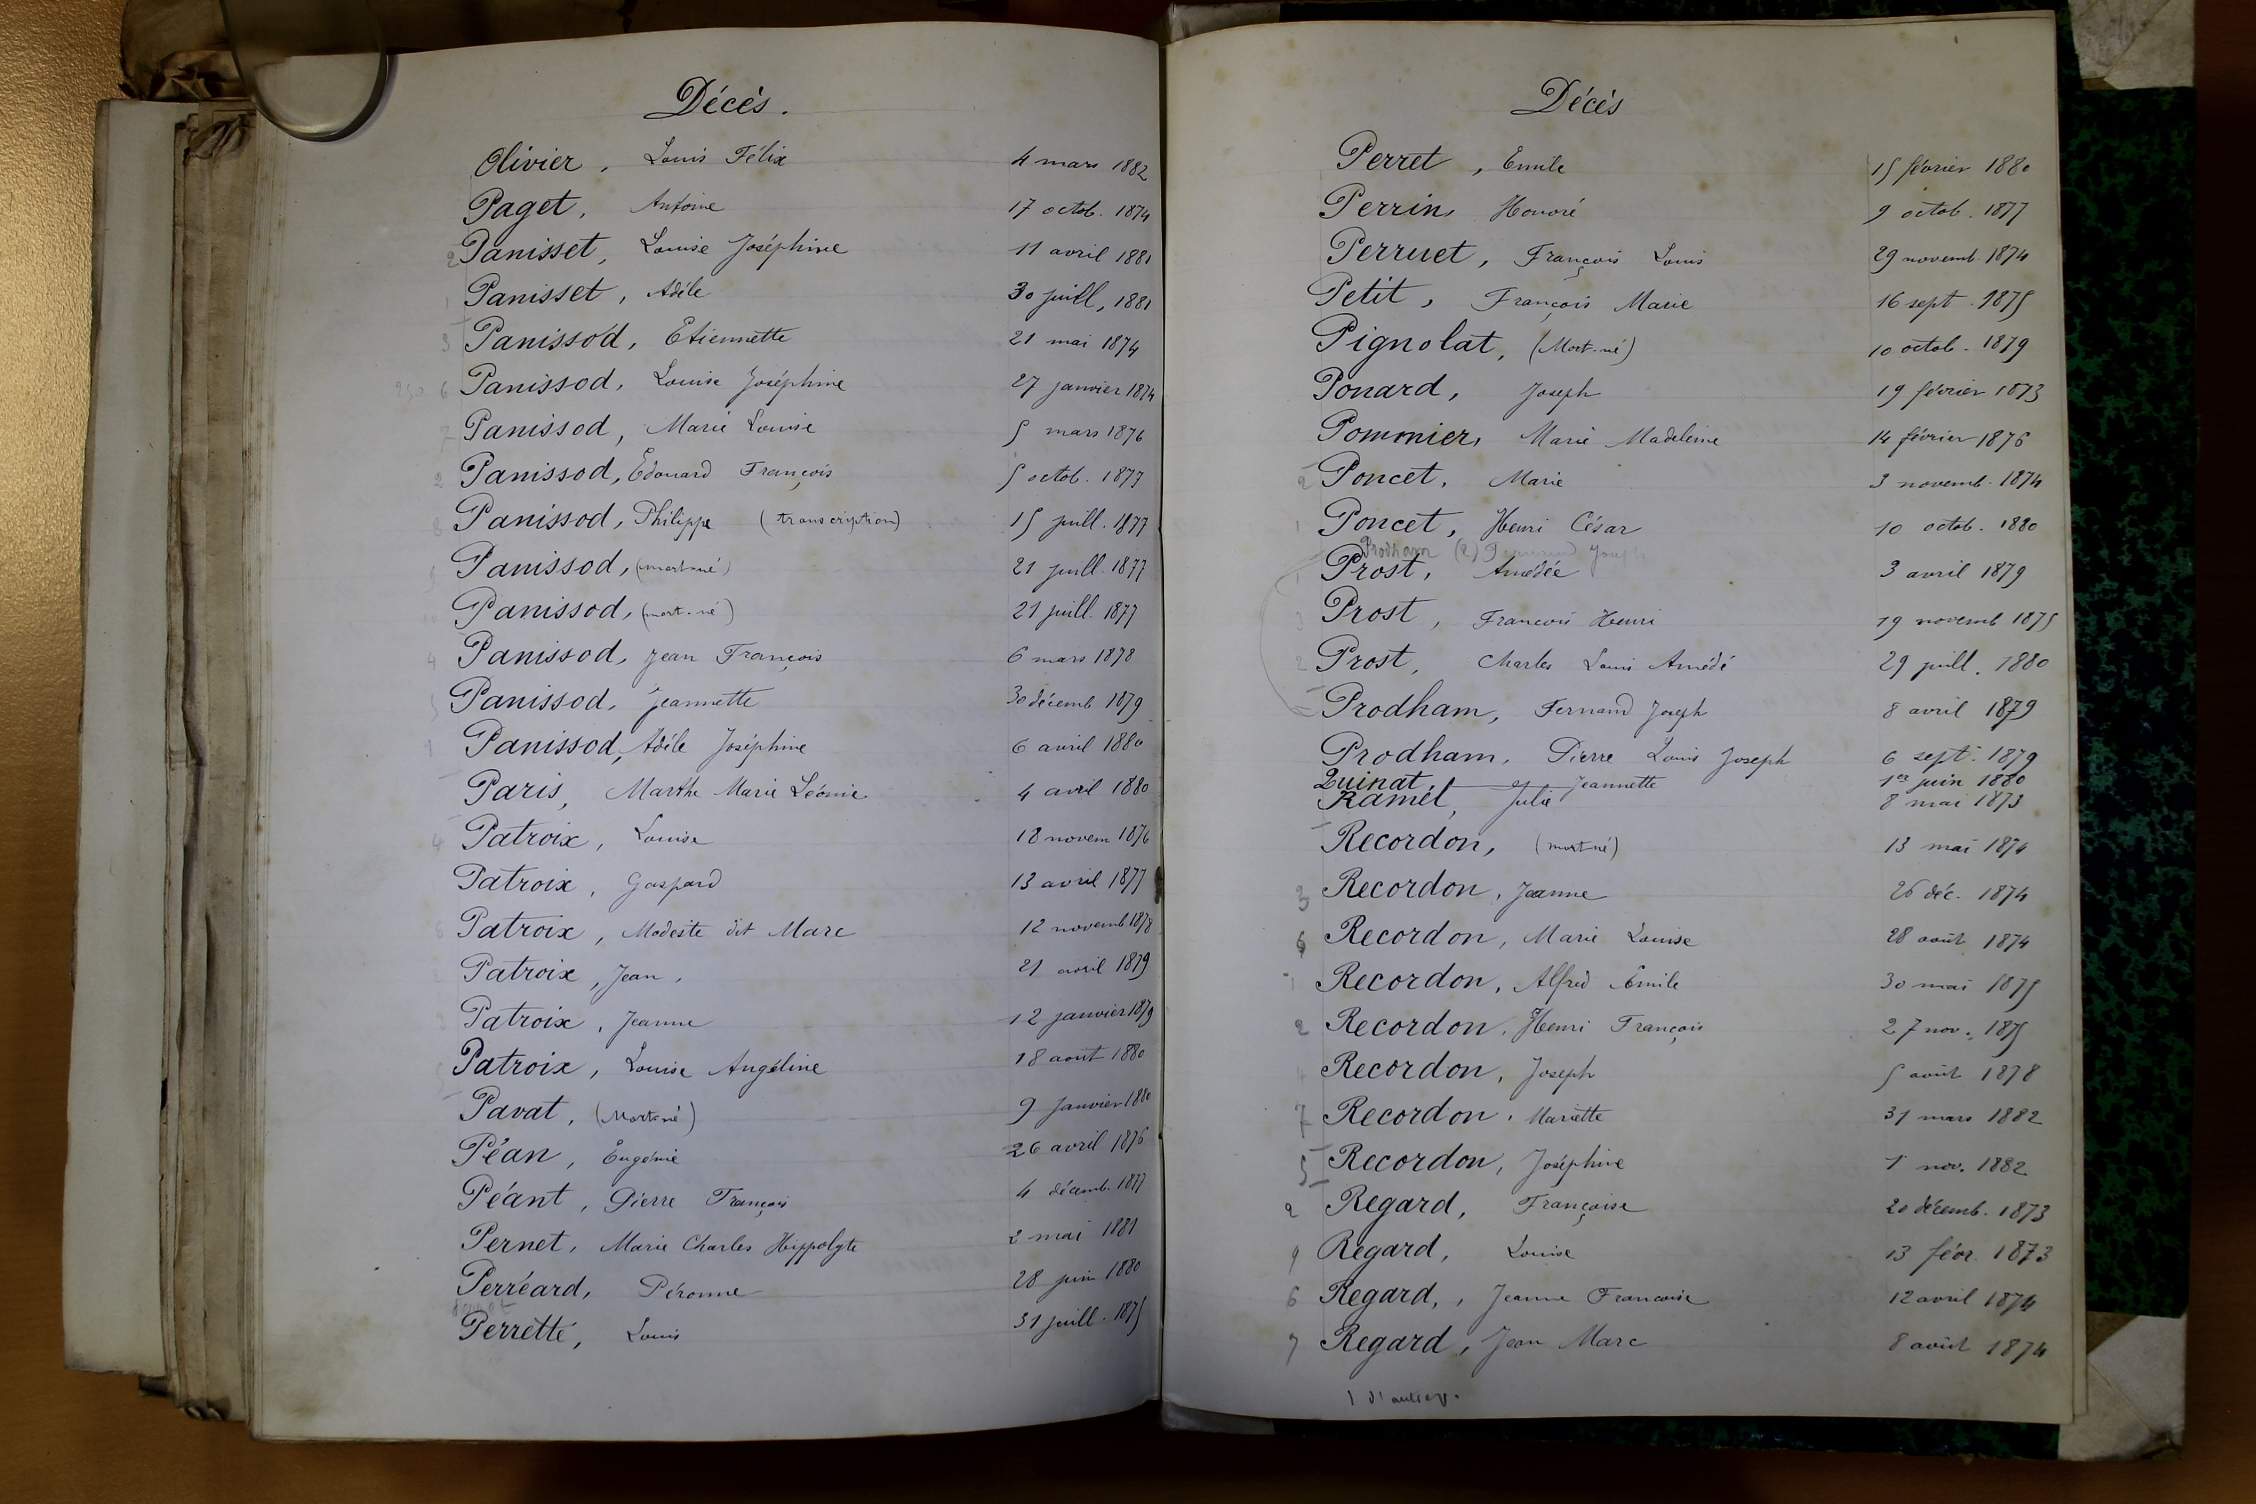 Décès.
Olivier, Louis Félix 4 mars 1882
Paget, Antoine 17 octob. 1874
2 Panisset, Louise Joséphine 11 avril 1881
1 Panisset, Adèle 30 juill, 1881
3 Panissod, Etiennette 21 mai 1874
250 6 Panissod, Louise Joséphine 27 janvier 1874
7 Panissod, Marie Louise 5 mars 1876
2 Panissod, Edouard François 5 octob. 1877
8 Panissod, Philippe (transcription) 15 juill. 1877
Panissod, (mort-né) 21 juill. 1877
Panissod, (mort-né) 21 juill. 1877
4 Panissod, Jean François 6 mars 1878
5 Panissod, Jeannette 30 décemb 1879
1 Panissod, Adèle Joséphine 6 avril 1880
Paris, Marthe Marie Léonie 4 avril 1880
4 Patroix, Louise 18 novem 1876
Patroix, Gaspard 13 avril 1877
6 Patroix, Modeste dit Marc 12 novemb 1878
Patroix, Jean, 21 avril 1879
Patroix, Jeanne 12 janvier 1879
Patroix, Louise Angéline 18 aout 1880
Pavat, (Mort-né) 9 Janvier 1880
Péan, Eugénie 26 avril 1876
Péant, Pierre François 4 décemb. 1877
Pernet, Marie Charles Hippolyte 2 mai 1881
Perréard, Péronne 28 juin 1880
Perrette, Louis 31 juill. 1875
Décès
Perret, Emile 15 février 1880
Perrin, Honoré 9 octob. 1877
Perruet, François Louis 29 novemb. 1874
Petit, François Marie 16 sept. 1875
Pignolat, (Mort-né) 10 octob. 1879
Ponard, Joseph 19 février 1873
Pommier, Marie Madeleine 14 février 1876
2 Poncet, Marie 3 novemb. 1874
1 Poncet, Henri César 10 octob. 1880
Prodham (2) Fernand Joseph
1 Prost, Amédée 3 avril 1879
3 Prost, François Henri 19 novemb 1875
2 Prost, Charles Louis Amédé 29 juill. 1880
Prodham, Fernand Joseph 8 avril 1879
Prodham, Pierre Louis Joseph 6 sept. 1879
Quinat, Jeannette 1er juin 1880
Ramel, Julie 8 mai 1873
Recordon, (mort-né) 13 mai 1874
3 Recordon, Jeanne 26 déc. 1874
6 Recordon, Marie Louise 28 août 1874
1 Recordon, Alfred Emile 30 mai 1875
2 Recordon, Henri François 27 nov. 1875
4 Recordon, Joseph 5 août 1878
7 Recordon, Mariette 31 mars 1882
5 Recordon, Joséphine 1 nov. 1882
2 Regard, Françoise 20 décemb. 1873
9 Regard, Louise 13 févr. 1873
6 Regard, Jeanne Francoise 12 avril 1874
7 Regard, Jean Marc 8 août 1874